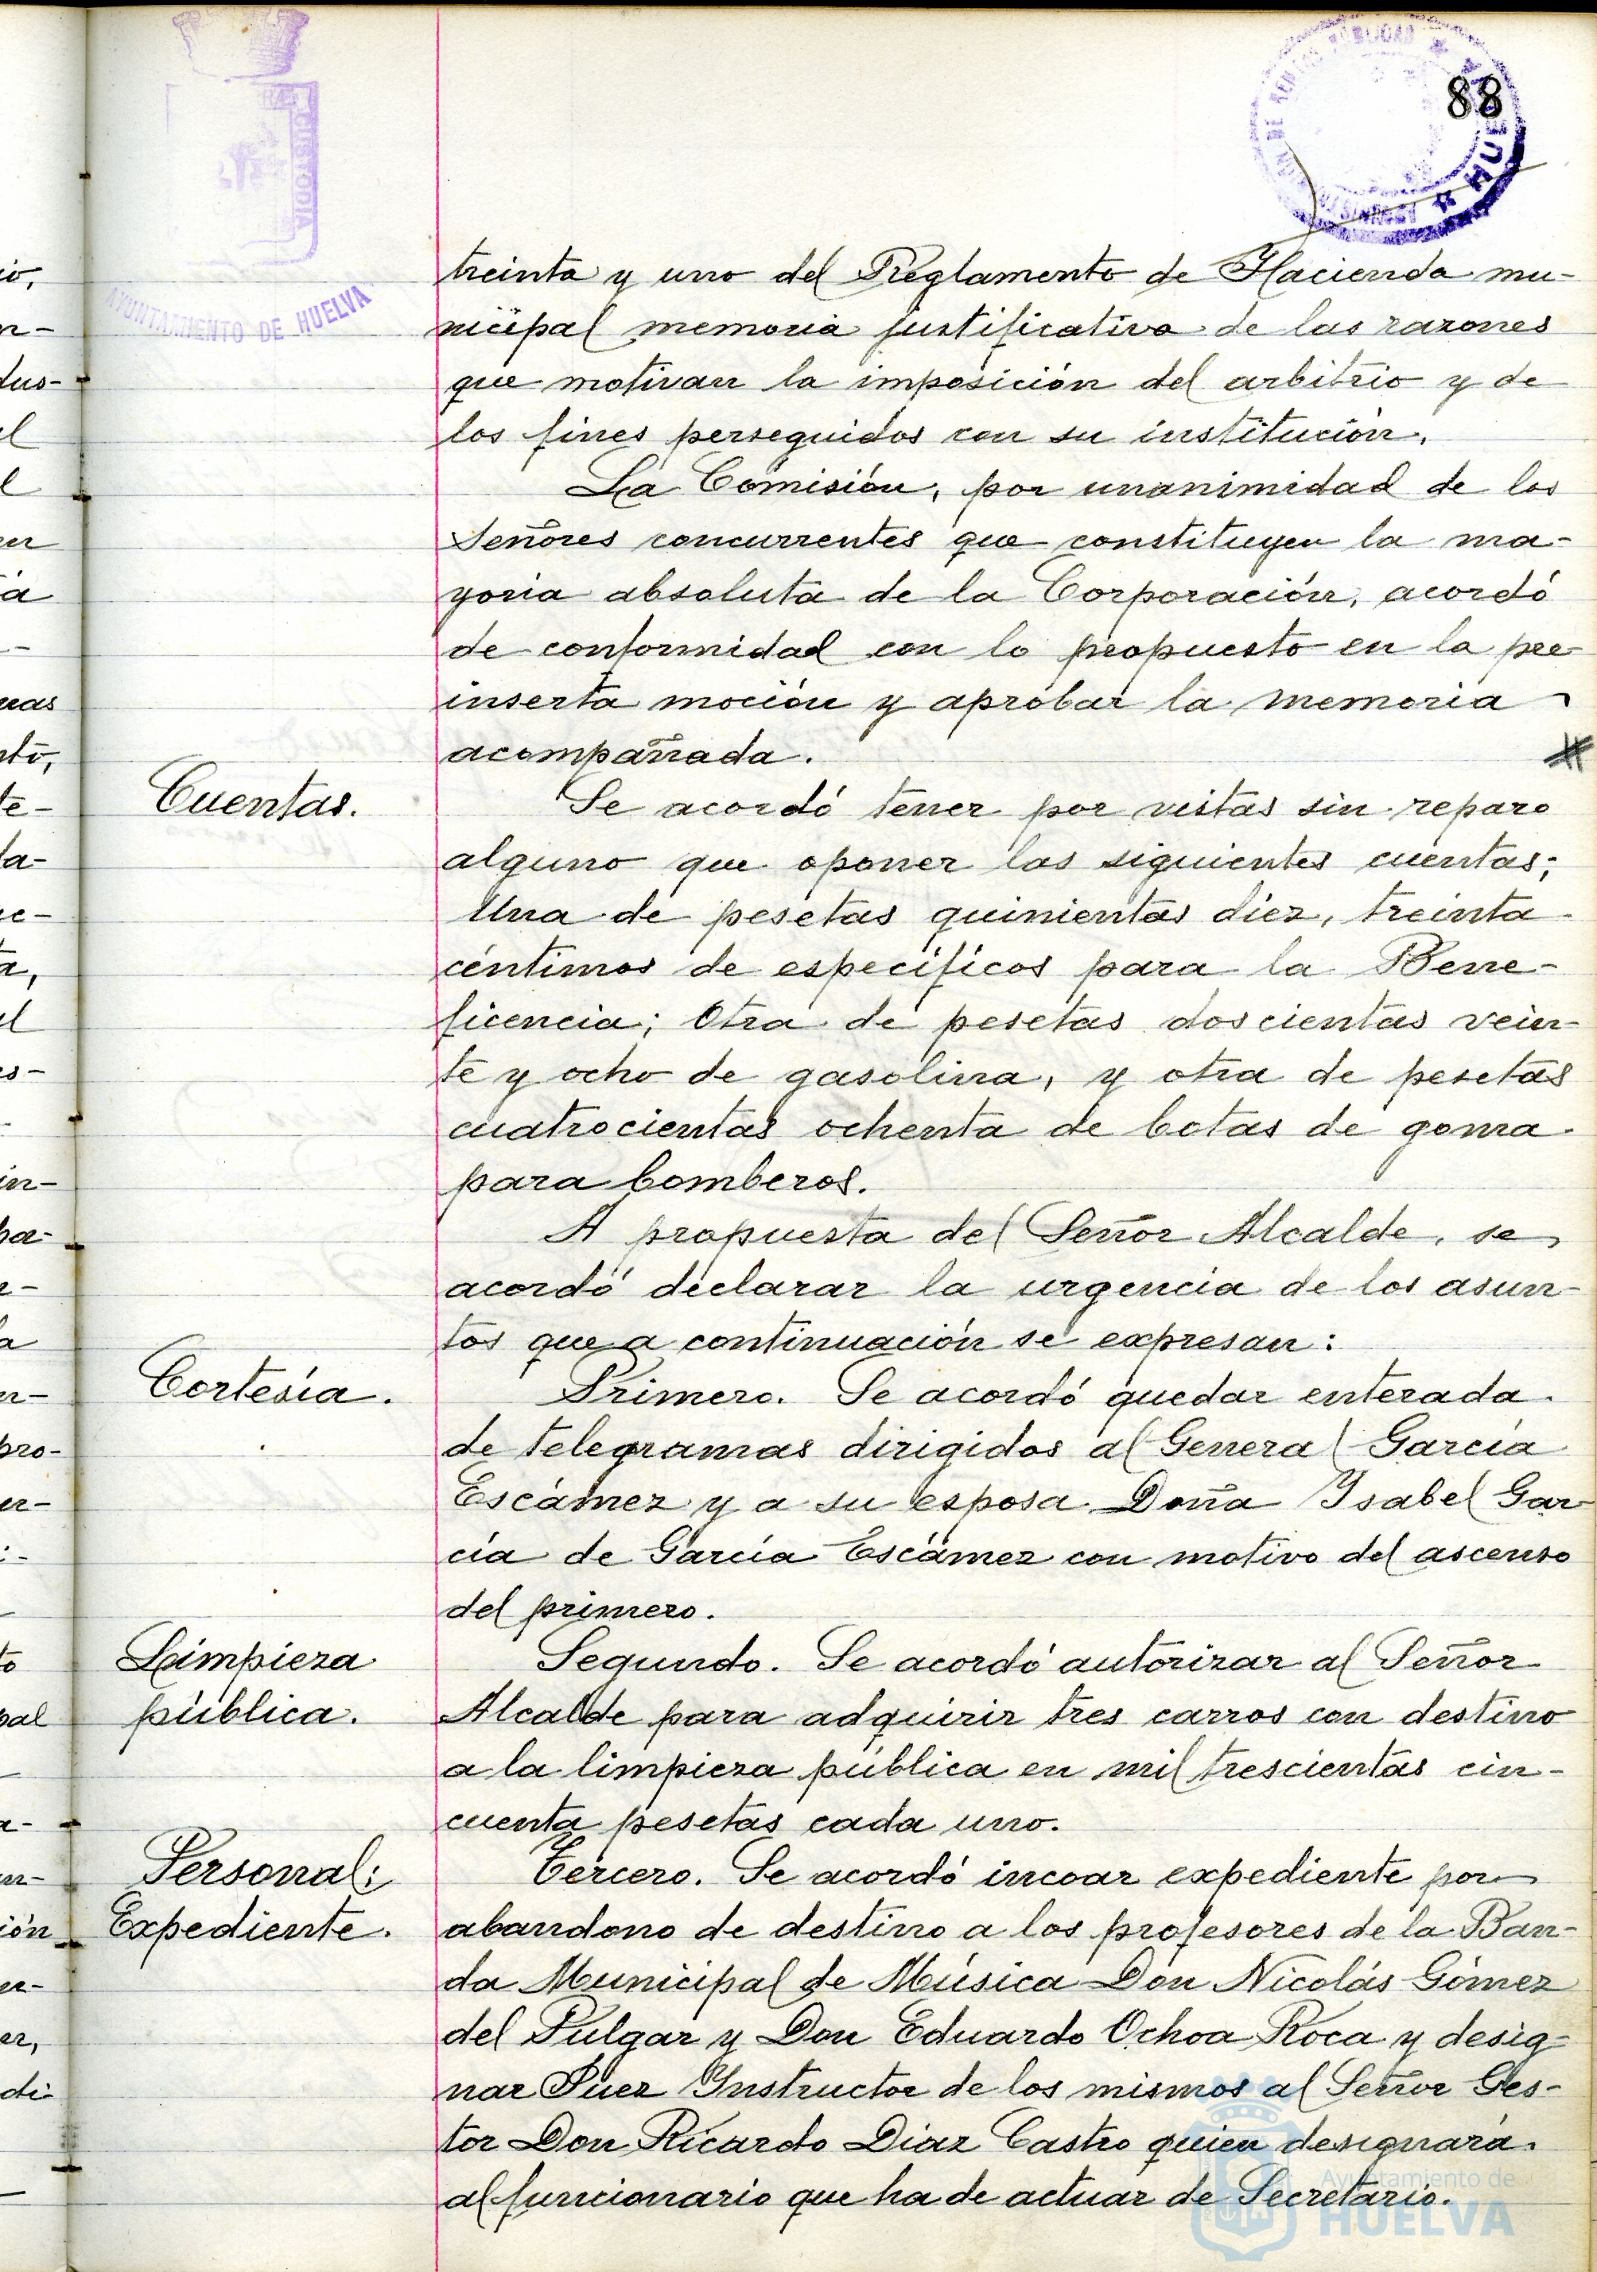 88
AYUNTAMIENTO DE HUELVA
treinta y uno del Reglamento de Hacienda mu-
nicipal memoria justificativa de las razones
que motivan la imposición del arbitrio y de
los fines perseguidos con su institución.
La Comisión, por unanimidad de los
Señores concurrentes que constituyen la ma-
yoria absoluta de la Corporación, acordó
de conformidad con lo propuesto en la pre
inserta moción y aprobar la memoria
acompañada.
Cuentas.
Se acordó tener por vistas sin reparo
alguno que oponer las siguientes cuentas;
Una de pesetas quinientas diez, treinta
céntimos de especificos para la Bene-
ficencia; Otra de pesetas doscientas vein-
te y ocho de gasolina, y otra de pesetas
cuatrocientas ochenta de botas de goma
para bomberos.
A propuesta del Señor Alcalde, se
acordó declarar la urgencia de los asun-
tos que a continuación se expresan:
Cortesía.
Primero. Se acordó quedar enterada
de telegramas dirigidos al General García
Escámez y a su esposa Doña Isabel Gar
cía de García Escámez con motivo del ascenso
del primero.
Limpieza
pública.
Segundo. Se acordó autorizar al Señor
Alcalde para adquirir tres carros con destino
a la limpieza pública en mil trescientas cin-
cuenta pesetas cada uno.
Personal:
Expediente.
Tercero. Se acordó incoar expediente por
abandono de destino a los profesores de la Ban-
da Municipal de Música Don Nicolás Gómez
del Pulgar y Don Eduardo Ochoa Roca y desig-
nar Juez Instructor de los mismos al Señor Ges-
tor Don Ricardo Díaz Castro quien designará
al funcionario que ha de actuar de Secretario.
Ayuntamiento de
HUELVA